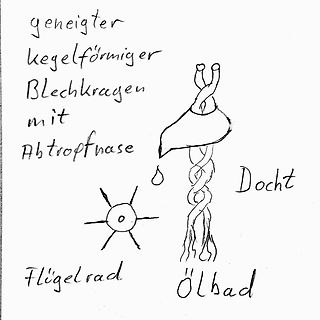 geneigter
kegelförmiger
Blechkragen
mit
Abtropfnase
Docht
Flügelrad
Ölbad